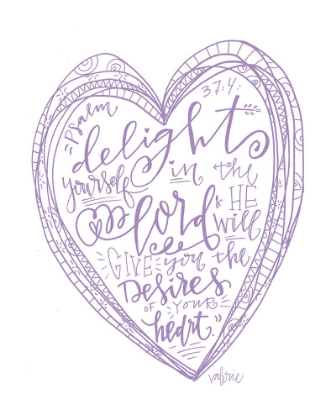 Psalm 37:4:
"delight
yourself in the
lord & HE
will
GIVE you the
DESiRES
OF YOUR
heart."
valerie